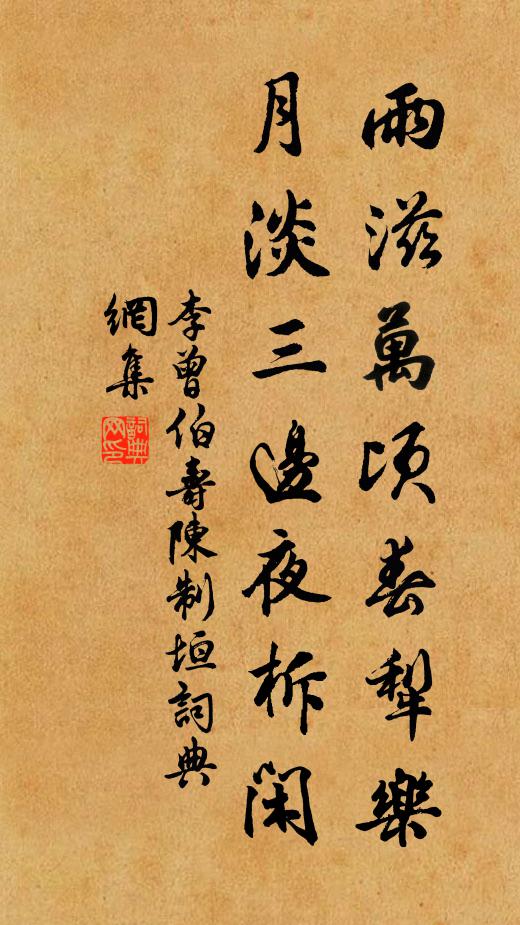 雨滋萬頃春犁樂
月淡三邊夜柝閑
李曾伯壽陳制垣詞典
網集
詞典网印